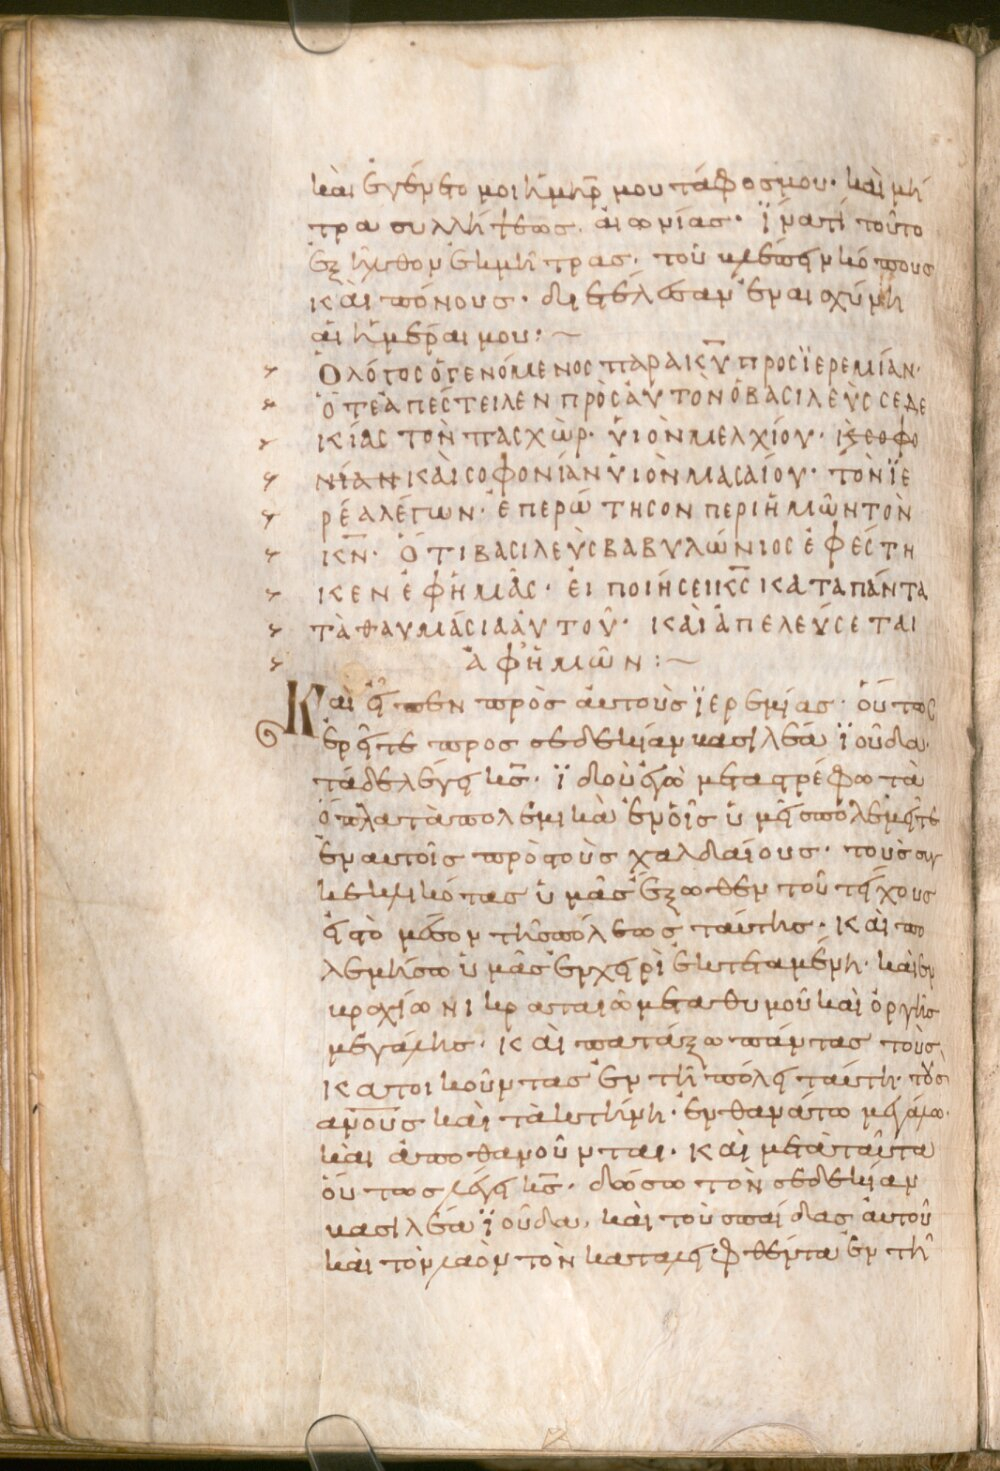 καὶ ἐγένετο μοι ἡ μηρ̅ μου τάφος μου· καὶ μή
τρα συλλήψεως αἰωνίας· ἵνατί τοῦτο
ἐξῆλθον ἐκ μήτρας· τοῦ βλέπειν κόπους
καὶ πόνους· διετέλεσαν ἐν αἰσχύνῃ
αἱ ἡμέραι μου:~
Ὁ λόγος ὁ γενόμενος παρὰ κ̅υ̅ προς ϊερεμίαν·
ὅτε ἀπέστειλεν πρὸς ἀυτὸν ὁ βασιλεὺς σεδε
κίας τὸν πασχὼρ· ὑιὸν μελχίου· κ̀ σοφο
νίαν καὶ σοφονίαν ὑιὸν μασαίου· τὸν ϊε
ρέα λέγων· ἐπερώτησον περὶ ἡμῶν τὸν
κ̅ν̅· ὅτι βασιλεὺς βαβυλώνιος ἐφέστη
κεν ἐφ ἡμᾶς· ἐι ποιήσει κ̅ς̅ κατα πάντα
τὰ θαυμάσια ἀυτοῦ· καὶ ἀπελεύσεται
ἀφ ἡμῶν:~
Καὶ εἶπεν πρὸς ἀυτοὺς ϊερεμίας· οὕτως
ἐρεῖτε προς σεδεκίαν βασιλέα ϊούδα·
τάδε λέγει κ̅ς̅· ϊδοὺ ἐγὼ μεταστρέφω τὰ
ὅπλα τὰ πολεμικὰ ἐν οἷς ὑμεῖς πολεμεῖτε
ἐν αυτοῖς πρὸς τοὺς χαλδαίους· τοὺς συγ
κεκλικότας ὑμᾶς ἔξωθεν τοῦ τείχους
εἰς τὸ μέσον τῆς πόλεως ταύτης· καὶ πο
λεμήσω ὑμᾶς ἐν χειρὶ ἐκτεταμένη· καὶ ἐν
βραχίωνι κραταιῶ μετα θυμοῦ καὶ ὀργῆς
μεγάλης· καὶ πατάξω πάντας τοὺς
κατοικοῦντας ἐν τῆ πόλει ταύτη· τοὺς
α̅ν̅ους καὶ τὰ κτήνη· ἐν θανάτω μεγάλω·
καὶ ἀποθανοῦνται· καὶ μετὰ ταῦτα
οὕτως λέγει κ̅ς̅· δώσω τὸν σεδεκίαν
βασιλέα ϊούδα, καὶ τοὺς παίδας ἀυτοῦ
καὶ τὸν λαὸν τὸν καταλειφθέντα ἐν τῆ